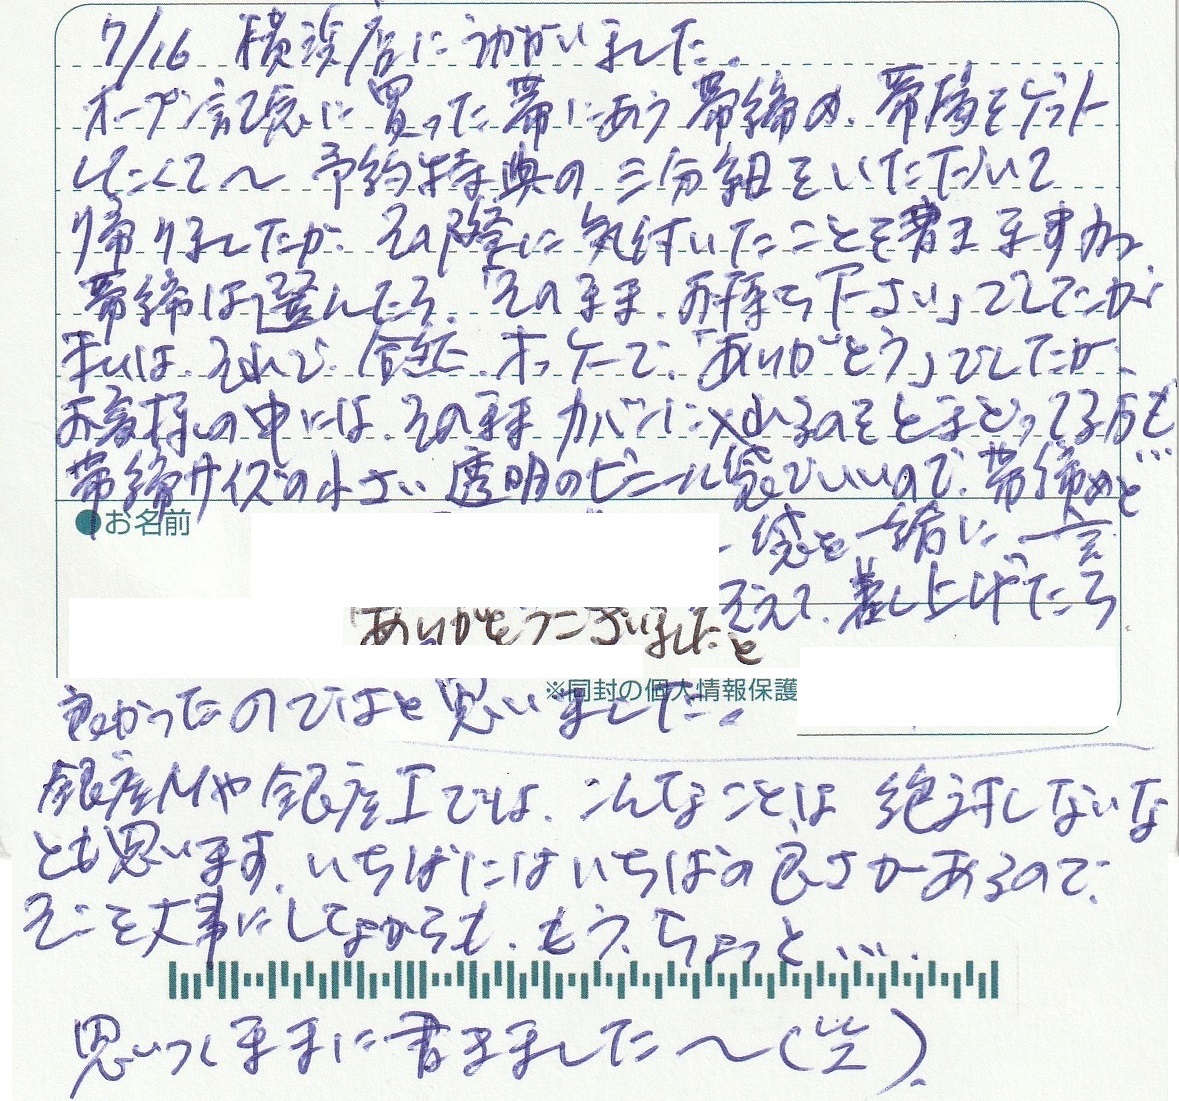 7/16 横浜店にうかがいました。
オープン記念に買った帯にあう帯締め、帯揚をゲット
したくて〜 予約特典の三分紐をいただいて
帰りましたが、その際に気付いたことを書きますね
帯締は選んだら、「そのまま、お持ち下さい」でしたが
私は、それで、全然、オッケーで、「ありがとう」でしたが、
お客様の中には、そのままカバンに入れるのをとまどってる方も…
帯締サイズの小さい透明のビニール袋でいいので、帯締めと
●お名前
袋を一緒に一言
そえて、差し上げたら
「ありがとうございました」と
※同封の個人情報保護
良かったのではと思いました。
銀座Mや銀座Iでは、こんなことは絶対しないな
とも思います。いちばにはいちばの良さがあるので、
そこを大事にしながらも、もう、ちょっと…。
思いつくままに書きました〜(笑).